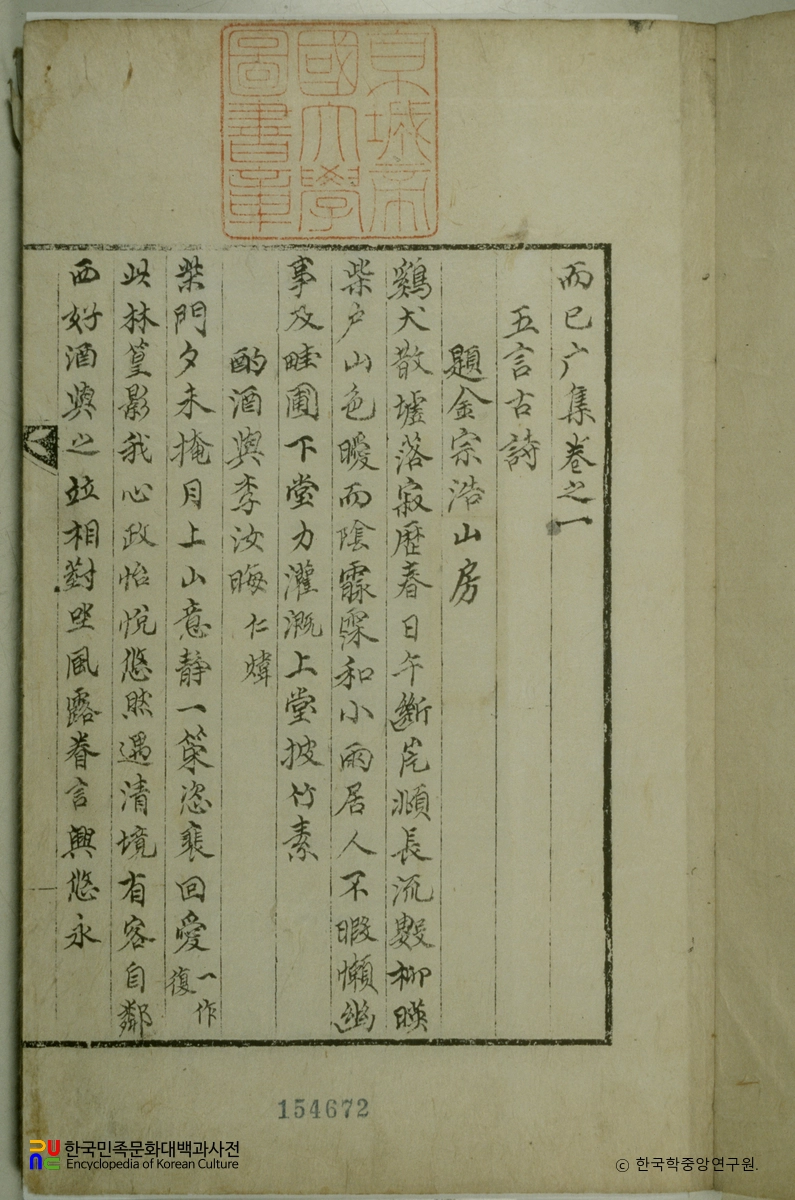 京城帝
國大學
圖書章
而已广集卷之一
五言古詩
題金宗浩山房
鷄犬散墟落寂歷春日午斷長流數柳暎
柴戶山色曖而陰霢霂和小雨居人不暇懶幽
事及畦圃下堂力灌漑上堂披竹素
酌酒與李汝晦仁煒
柴門夕未掩月上山意靜一筇恣裵回愛一作復
此林篁影我心政怡悅悠然遇清境有客自鄰
西好酒與之竝相對坐風露眷言興悠永
154672
한국민족문화대백과사전
Encyclopedia of Korean Culture
© 한국학중앙연구원.